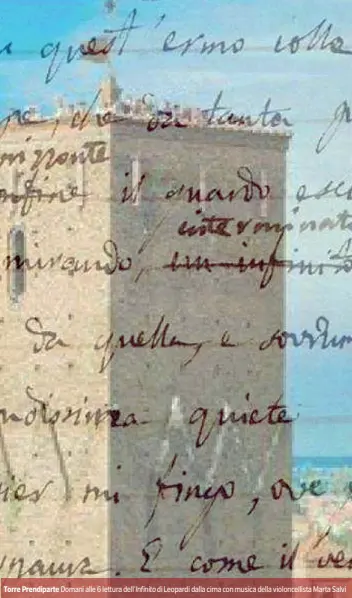 quest'ermo colle
che da tanta
orizzonte
il guardo
interminato
mirando, un infinito
da quella, e sovrum
ndissima quiete
mi fingo, ove
E come il ven
Torre Prendiparte Domani alle 6 lettura dell'Infinito di Leopardi dalla cima con musica della violoncellista Marta Salvi